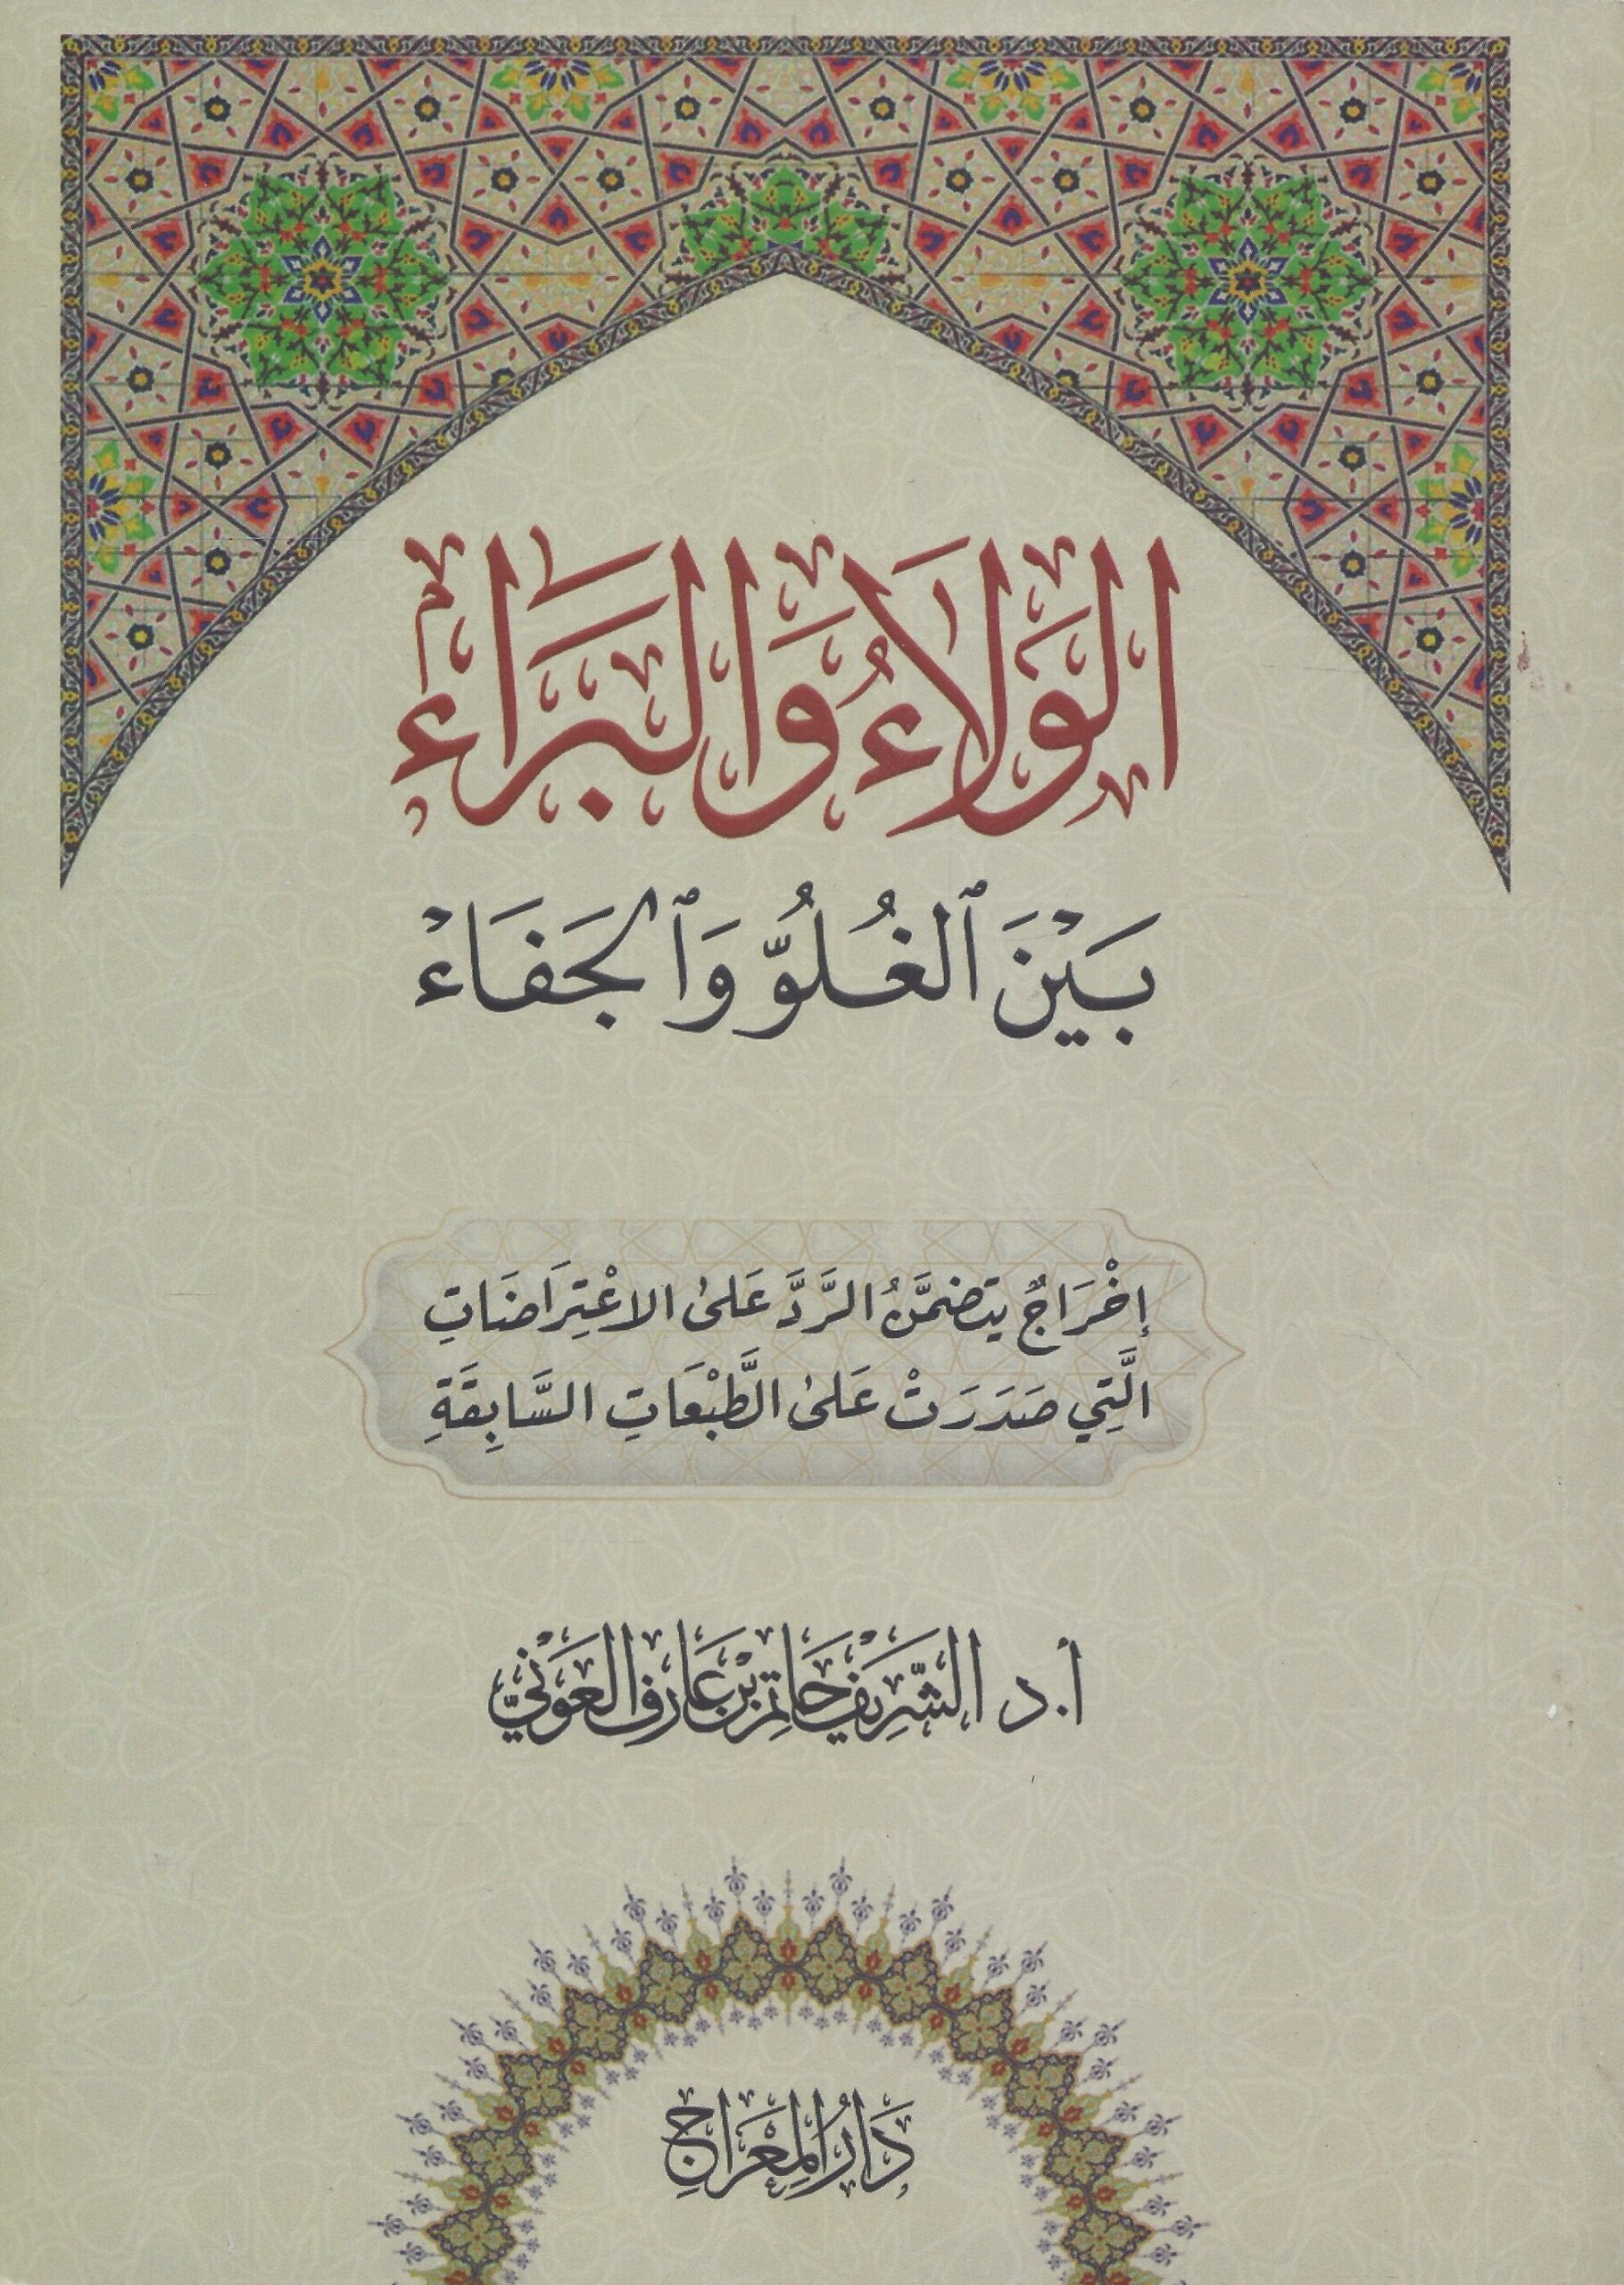 الوَلَاءُ وَالبَرَاءُ
بَيْنَ ٱلغُلُوِّ وَٱلجَفَاءِ
إخْرَاجٌ يتضمَّنُ الرَّدَّ عَلىٰ الاعْتِرَاضَاتِ
الَّتِي صَدَرَتْ عَلىٰ الطَّبْعَاتِ السَّابِقَةِ
أ.د الشَّرِيْف حَاتِم بْن عَارِف العَوْنِيّ
دَارُ المِعْرَاجِ